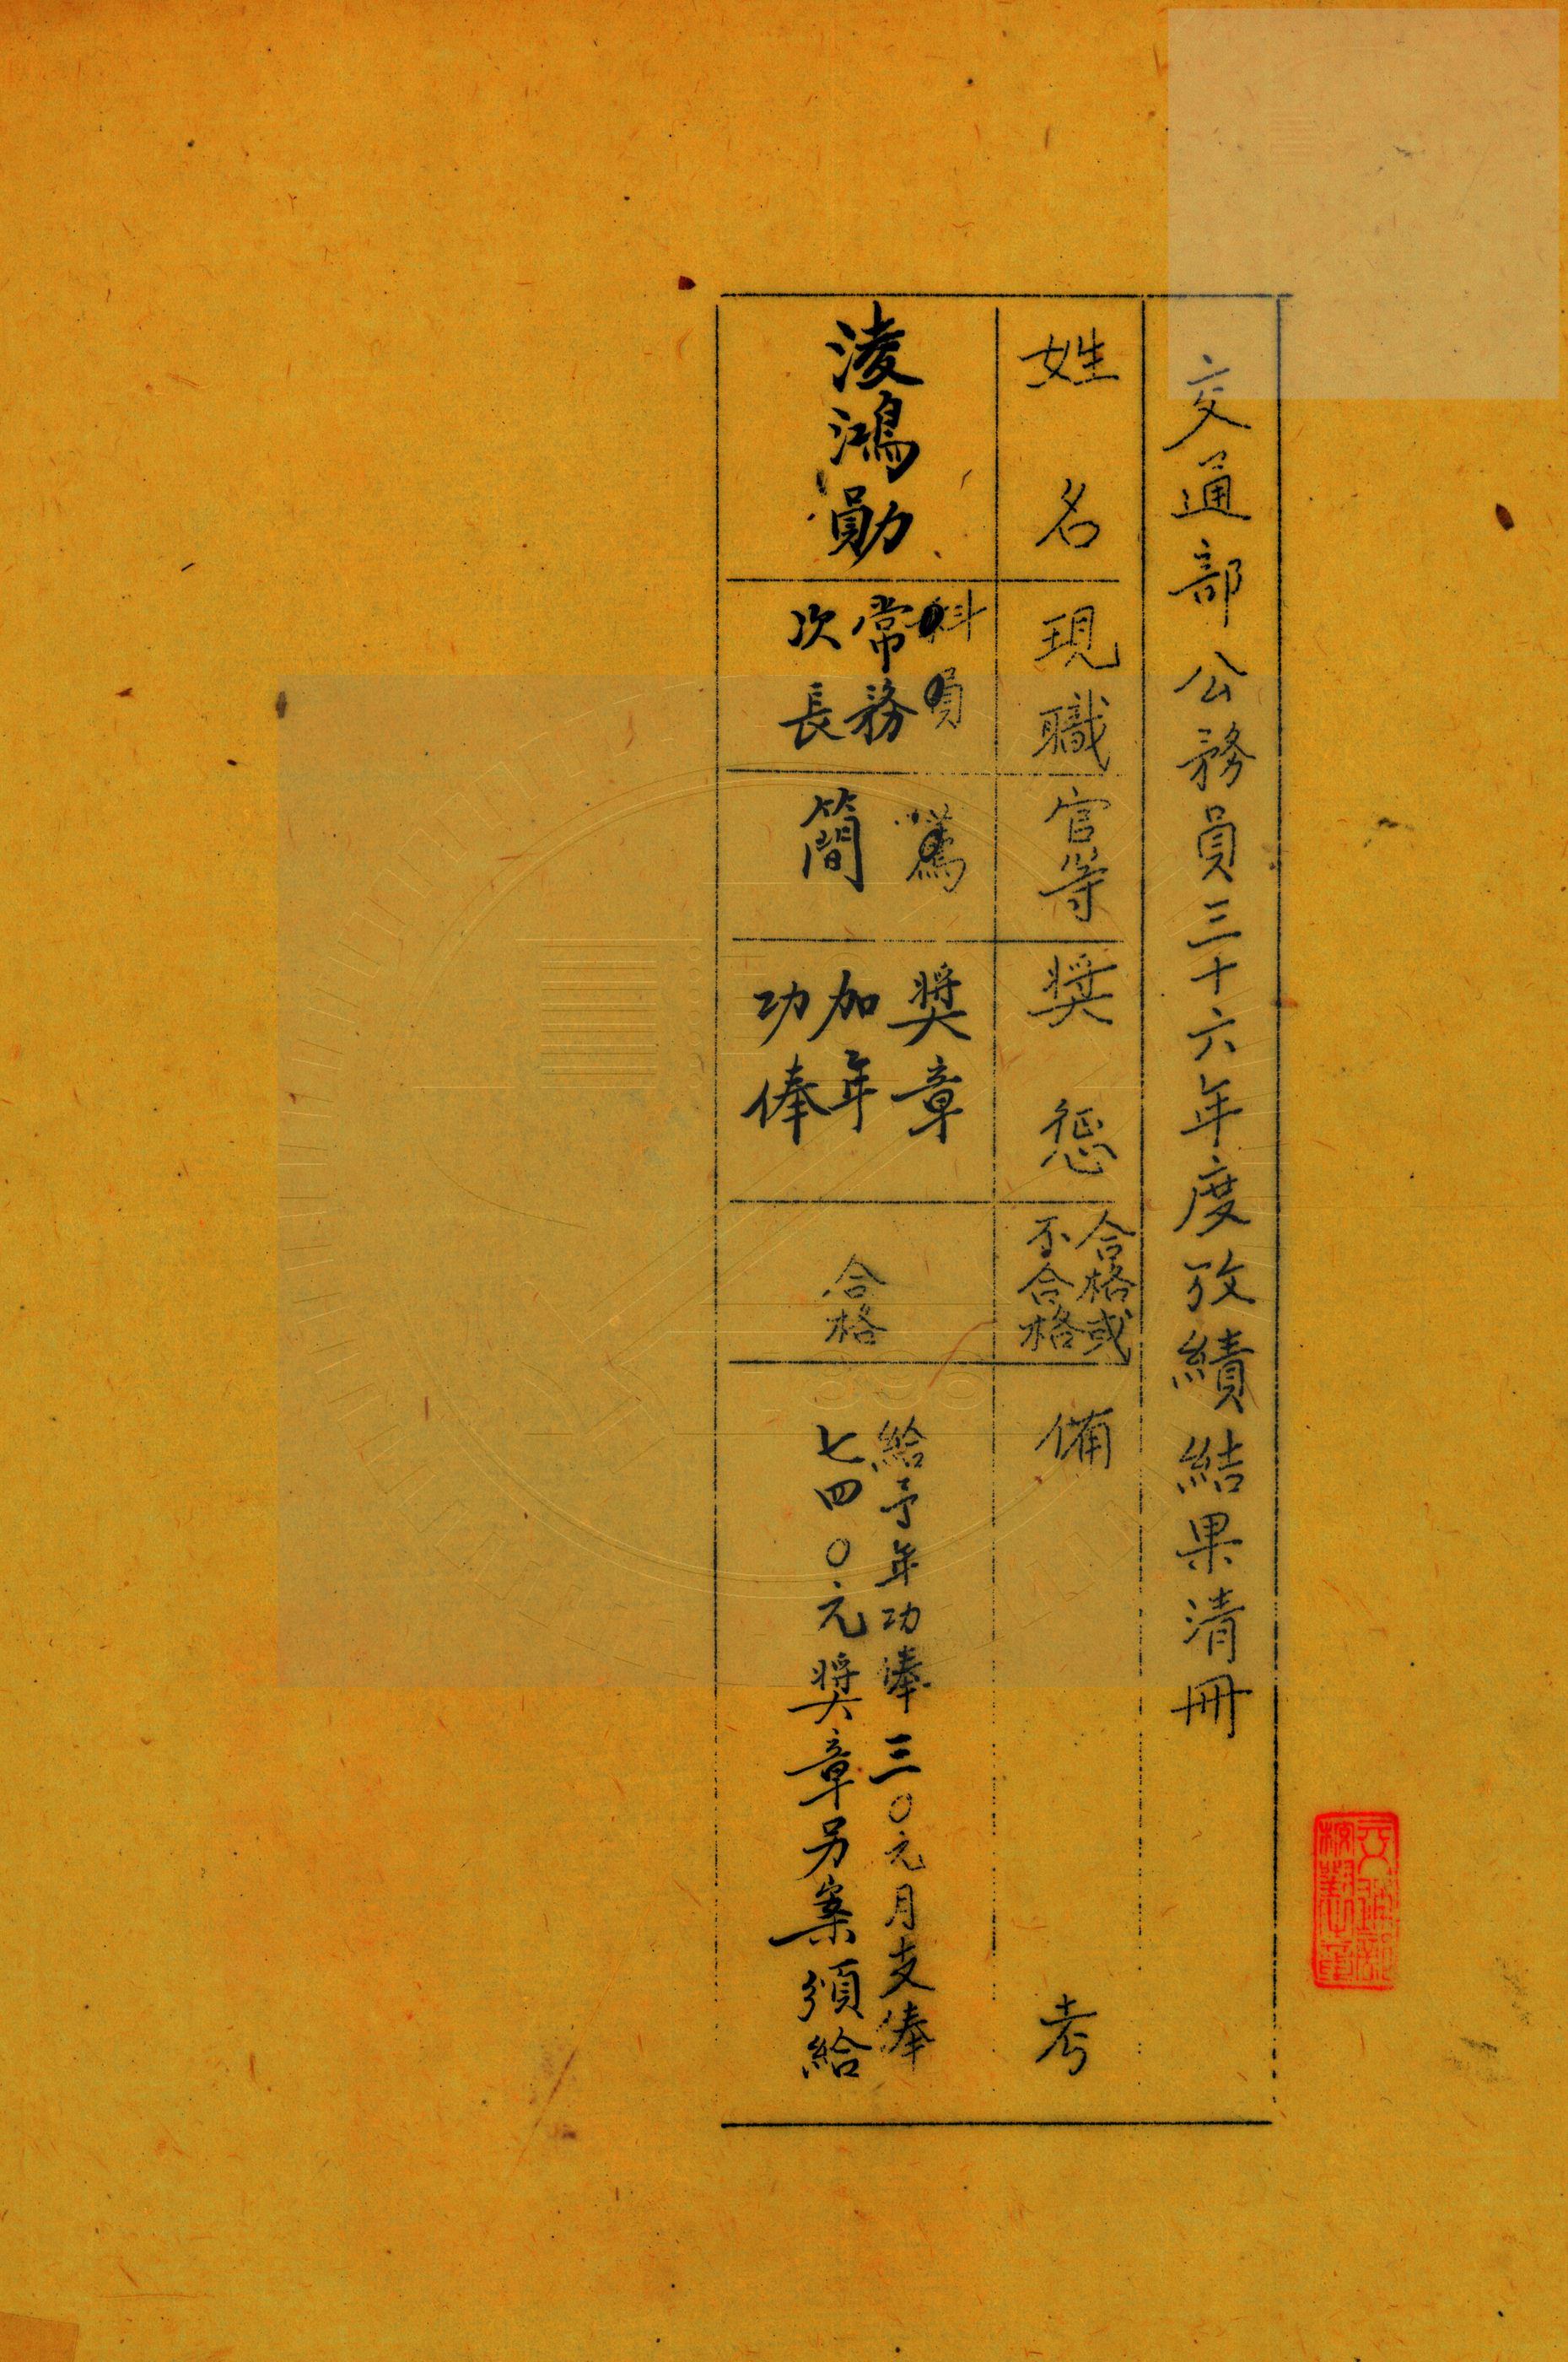 交通部公務員三十六年度攷績結果清冊
姓名
現職
官等
獎懲
合格或
不合格
備考
淩鴻勛
科員
常務
次長
薦
簡
獎章
加年
功俸
合格
給予年功俸三〇元月支俸
七四〇元獎章另案頒給